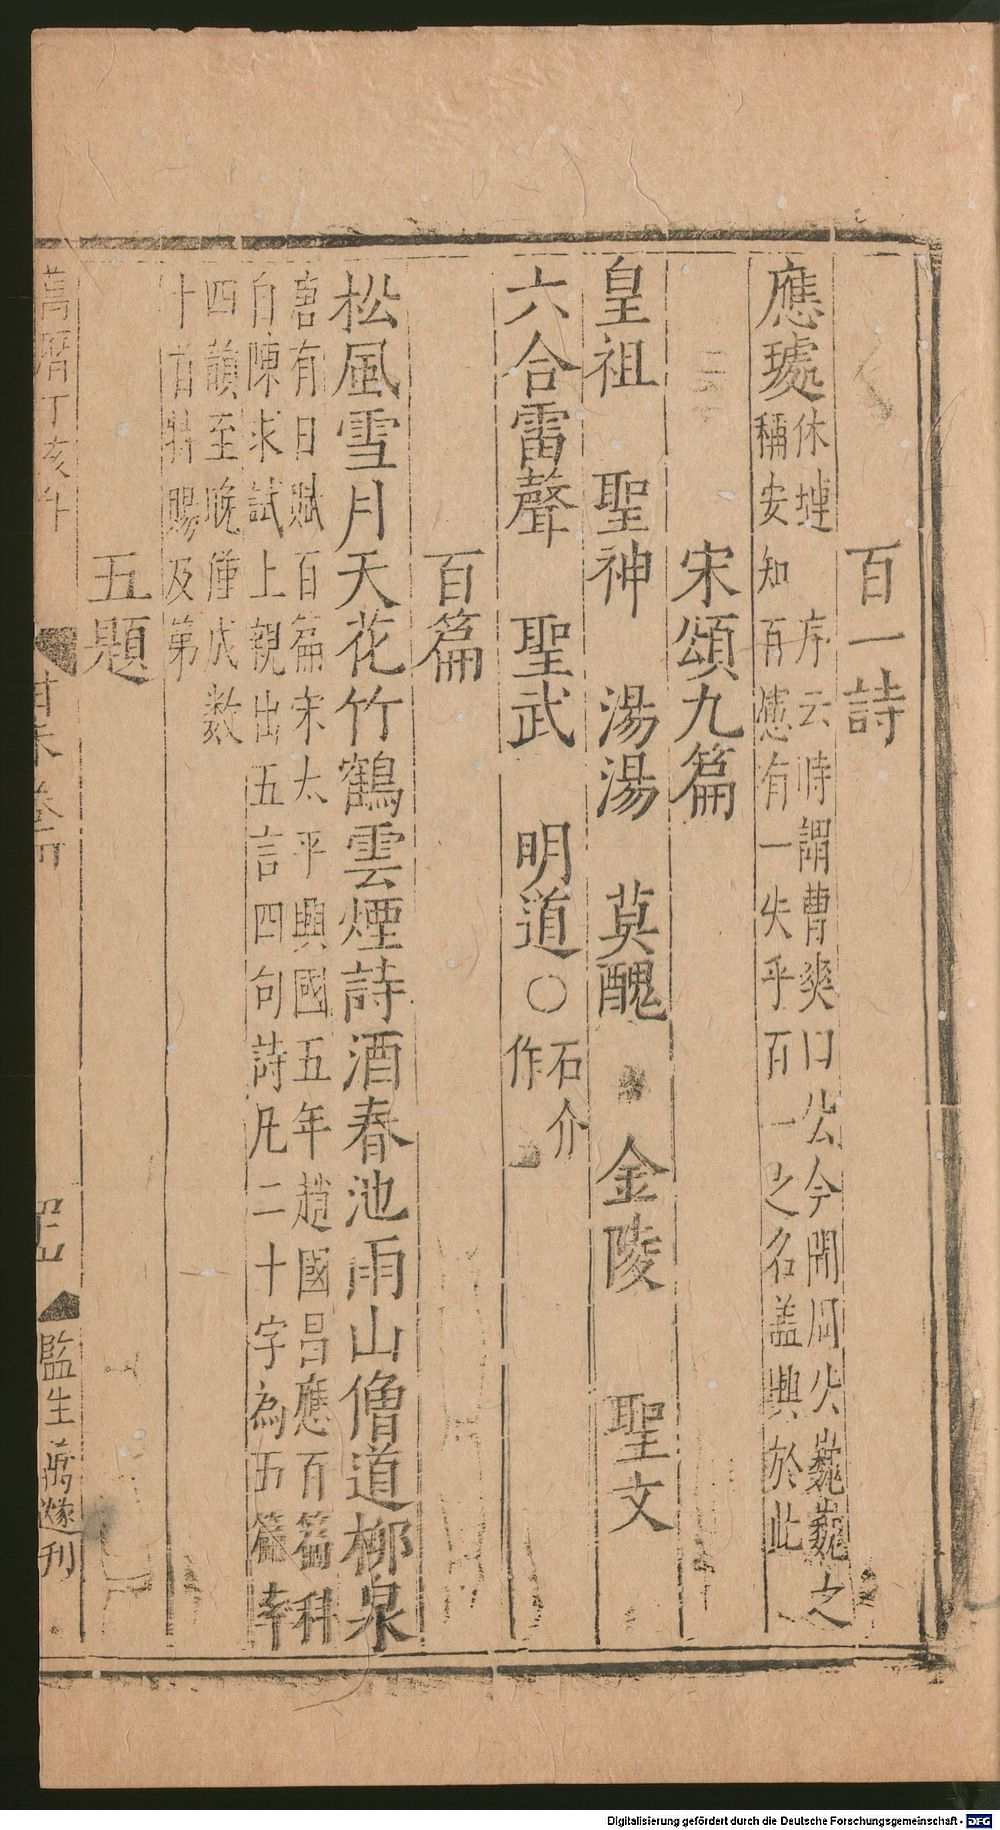 百一詩
應璩休璉 序云時謂曹爽曰公今聞周公巍巍之
稱安知百慮有一失乎百一之名蓋興於此
宋頌九篇
皇祖 聖神 湯湯 莫醜 金陵 聖文
六合雷聲 聖武 明道○石介
作
百篇
松風雪月天花竹鶴雲煙詩酒春池雨山僧道柳泉
唐有日賦百篇宋太平興國五年趙國昌應百篇科
自陳求試上親出五言四句詩凡二十字為五篇率
四韻至晚僅成數
十首特賜及第
五題
萬曆丁亥年
監生 燧刊
Digitalisierung gefördert durch die Deutsche Forschungsgemeinschaft - DFG